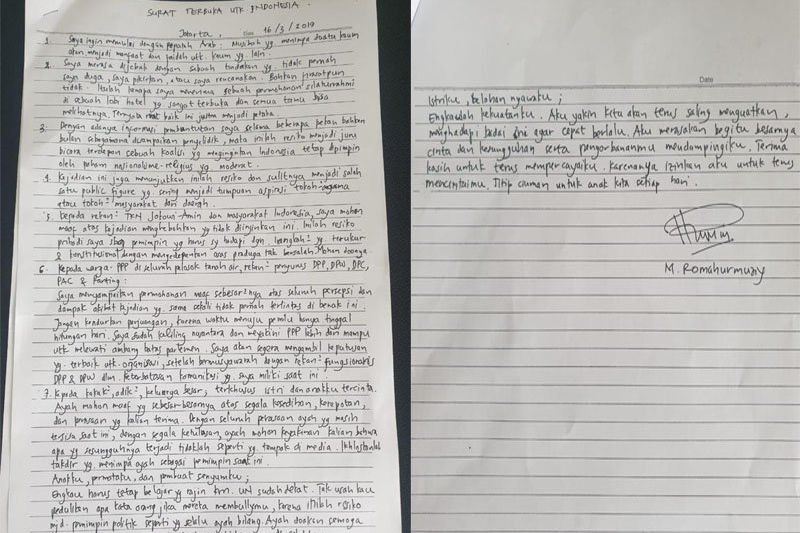 SURAT TERBUKA UTK INDONESIA
Jakarta, Date 16/3/2019
1. Saya ingin memulai dengan pepatah Arab: Musibah yg. menimpa suatu kaum
akan menjadi manfaat dan faidah utk. kaum yg lain.
2. Saya merasa dijebak dengan sebuah tindakan yg. tidak pernah
saya duga, saya pikirkan, atau saya rencanakan. Bahkan firasatpun
tidak. Itulah kenapa saya menerima sebuah permohonan silaturrahmi
di sebuah lobi hotel yg sangat terbuka dan semua tamu bisa
melihatnya. Ternyata niat baik ini justru menjadi petaka.
3. Dengan adanya informasi pembuntutan saya selama beberapa pekan bahkan
bulan sebagaimana disampaikan penyelidik, maka inilah resiko menjadi juru
bicara terdepan sebuah koalisi yg menginginkan Indonesia tetap dipimpin
oleh paham nasionalisme-religius yg moderat.
4. Kejadian ini juga menunjukkan inilah resiko dan sulitnya menjadi salah
satu public figure yg sering menjadi tumpuan aspirasi tokoh-agama
atau tokoh² masyarakat dari daerah.
5. Kepada rekan² TKN Jokowi-Amin dan masyarakat Indonesia, saya mohon
maaf atas kejadian menghebohkan yg tidak diinginkan ini. Inilah resiko
pribadi saya sbg pemimpin yg harus sy hadapi dgn. langkah² yg terukur
& konstitusional dengan mengedepankan asas praduga tak bersalah. Mohon doanya.
6. Kepada warga PPP di seluruh pelosok tanah air, rekan² pengurus DPP, DPW, DPC,
PAC & Ranting:
Saya menyampaikan permohonan maaf sebesar²nya atas seluruh persepsi dan
dampak akibat kejadian yg. sama sekali tidak pernah terlintas di benak ini.
Jangan kendurkan perjuangan, karena waktu menuju pemilu hanya tinggal
hitungan hari. Saya sudah keliling nusantara dan meyakini PPP lebih dari mampu
utk melewati ambang batas parlemen. Saya akan segera mengambil keputusan
yg. terbaik utk. organisasi, setelah bermusyawarah dengan rekan² fungsionaris
DPP & DPW dlm. keterbatasan komunikasi yg. saya miliki saat ini.
7. Kepada kakak², adik², keluarga besar, terkhusus istri dan anakku tercinta.
Ayah mohon maaf yg sebesar-besarnya atas segala kesedihan, kerepotan,
dan perasaan yg kalian terima. Dengan seluruh perasaan ayah yg masih
tersisa saat ini, dengan segala ketulusan, ayah mohon keyakinan kalian bahwa
apa yg sesungguhnya terjadi tidaklah seperti yg tampak di media. Ikhlaskanlah
takdir yg. menimpa ayah sebagai pemimpin saat ini.
Anakku, permataku, dan pembuat senyumku;
Engkau harus tetap belajar yg rajin krn. UN sudah dekat. Tak usah kau
pedulikan apa kata orang, jika mereka membullymu, karena inilah resiko
mjd. pemimpin politik seperti yg selalu ayah bilang. Ayah doakan semoga
Date
Istriku, belahan nyawaku;
Engkaulah kekuatanku. Aku yakin kita akan terus saling menguatkan,
menghadapi badai ini agar cepat berlalu. Aku merasakan begitu besarnya
cinta dan kesungguhan serta pengorbananmu mendampingiku. Terima
kasih untuk terus mempercayaiku. Karenanya izinkan aku untuk terus
mencintaimu. Titip ciuman untuk anak kita setiap hari.
M. Romahurmuziy